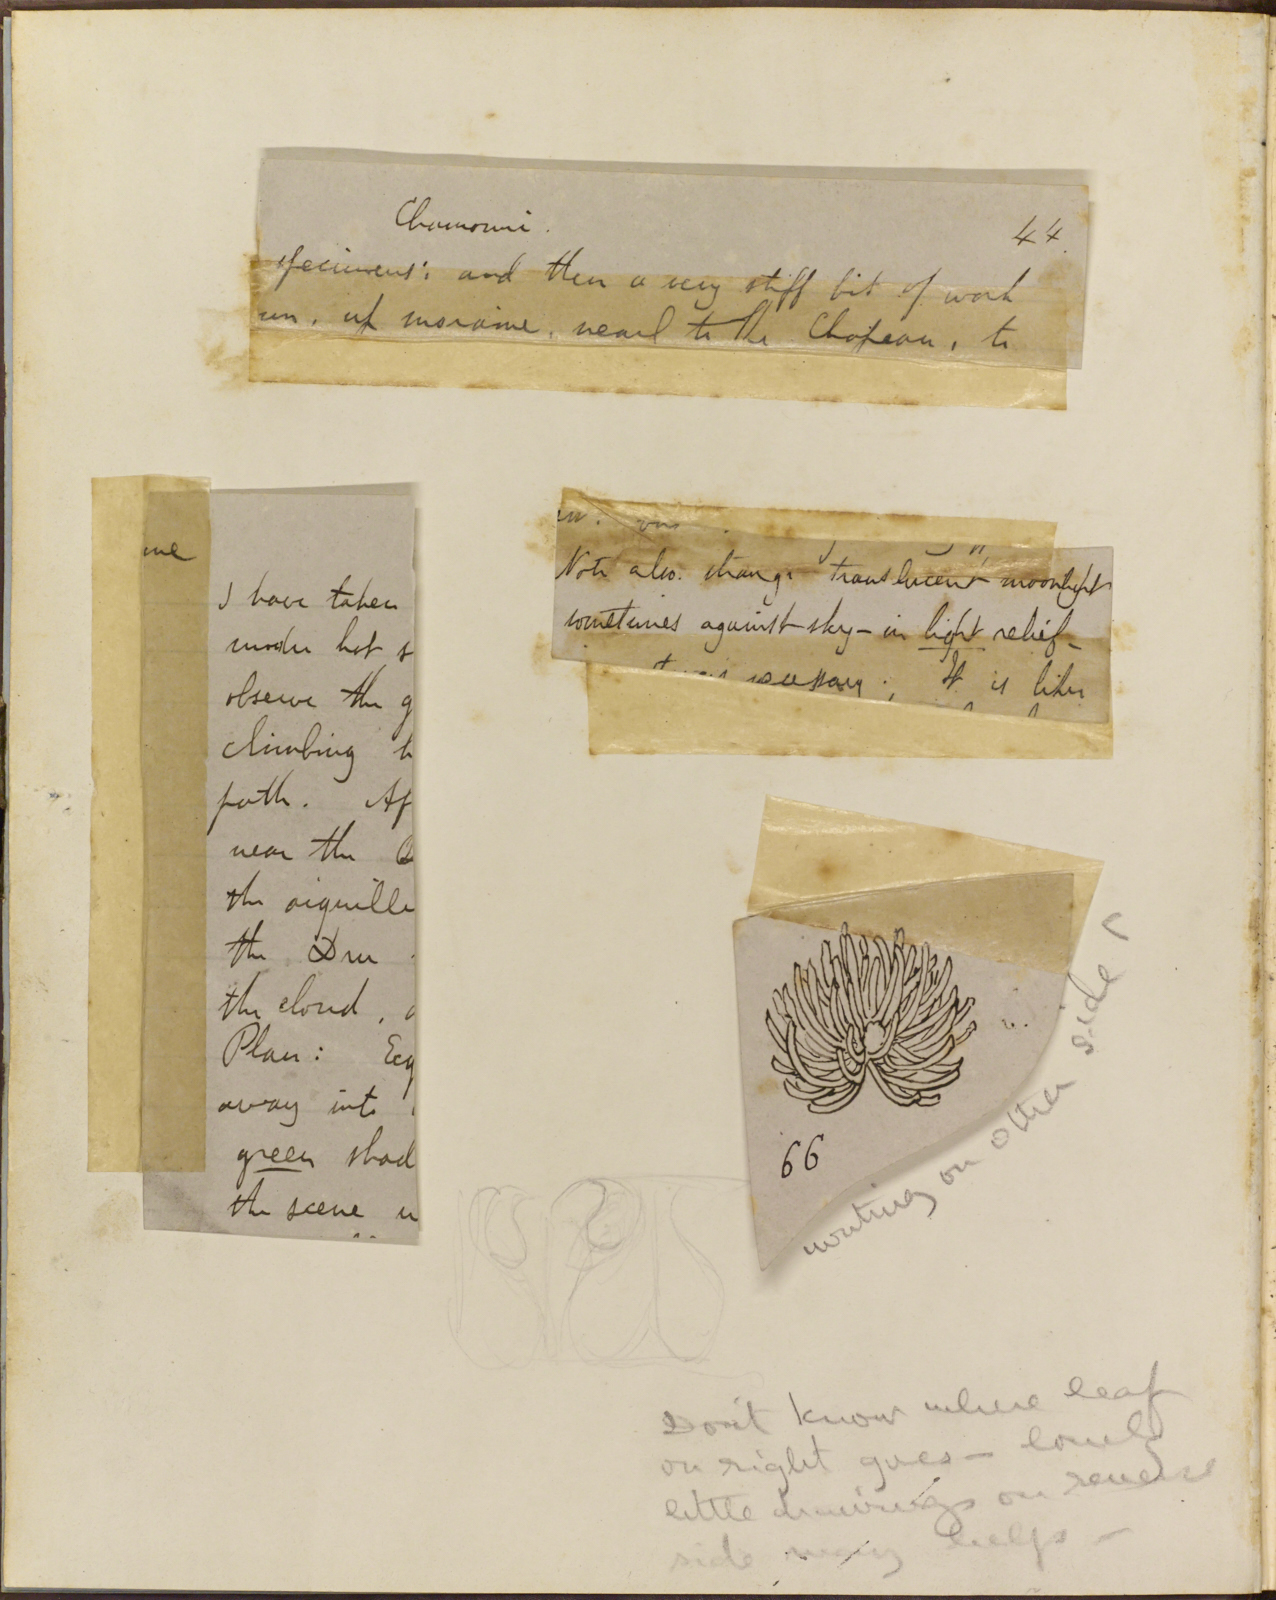 Chamouni.
44.
specimens; and then a very stiff bit of work
up moraine, near to the Chapeau, to
me
I have taken
model hot s
observe the g
climbing h
path. Af
near the
the aiguille
the Dru
the cloud,
Plan:
away into
green shad
the scene
Note also. strange translucent moonlight
sometimes against sky - in light relief -
necessary; It is like
66
writing on other side
Don't know where leaf
on right goes - lovely
little drawings on reverse
side may help -